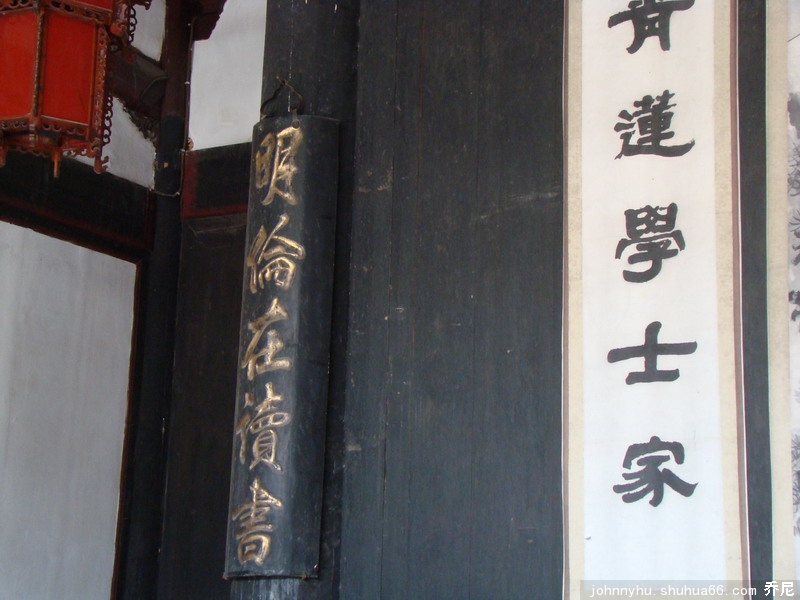 青蓮學士家
明倫在讀書
johnnyhu. shuhua66. com 乔尼